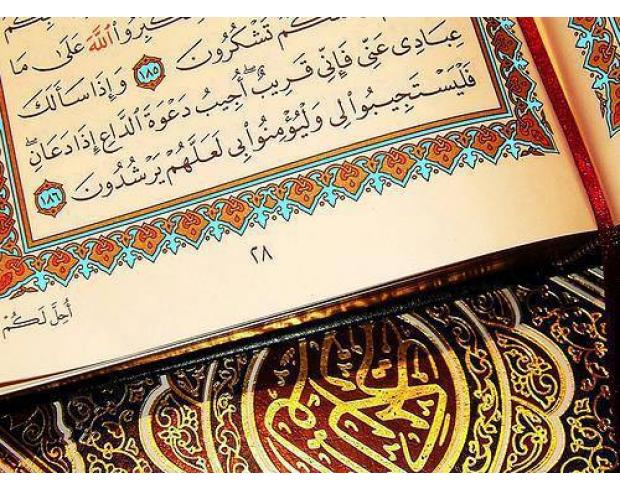 اللَّهَ عَلَىٰ مَا
تَشْكُرُونَ ١٨٥ وَإِذَا سَأَلَكَ
عِبَادِى عَنِّى فَإِنِّى قَرِيبٌ ۖ أُجِيبُ دَعْوَةَ الدَّاعِ إِذَا دَعَانِ ۖ
فَلْيَسْتَجِيبُوا لِى وَلْيُؤْمِنُوا بِى لَعَلَّهُمْ يَرْشُدُونَ ١٨٦
٢٨
أُحِلَّ لَكُمْ